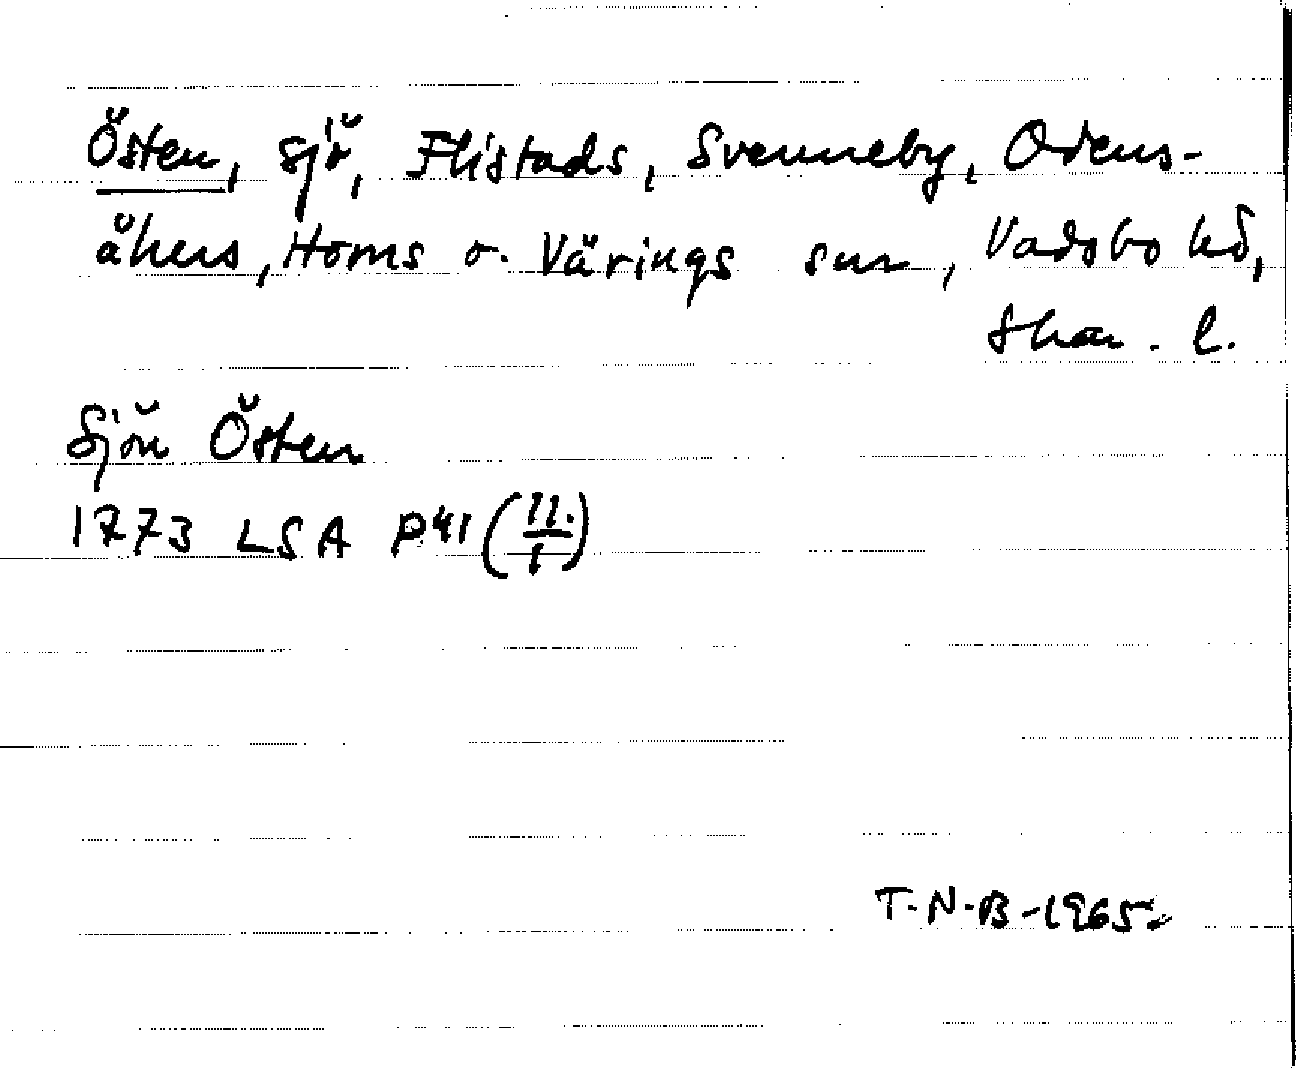 Östen, sjö, Flistads, Svenneby, Odens-
åkers, Horns o. Värings snr, Vadsbo hd,
Skar. l.
Sjön Östen
1773 LSA P41 (11./1)
T.N.B-1965.